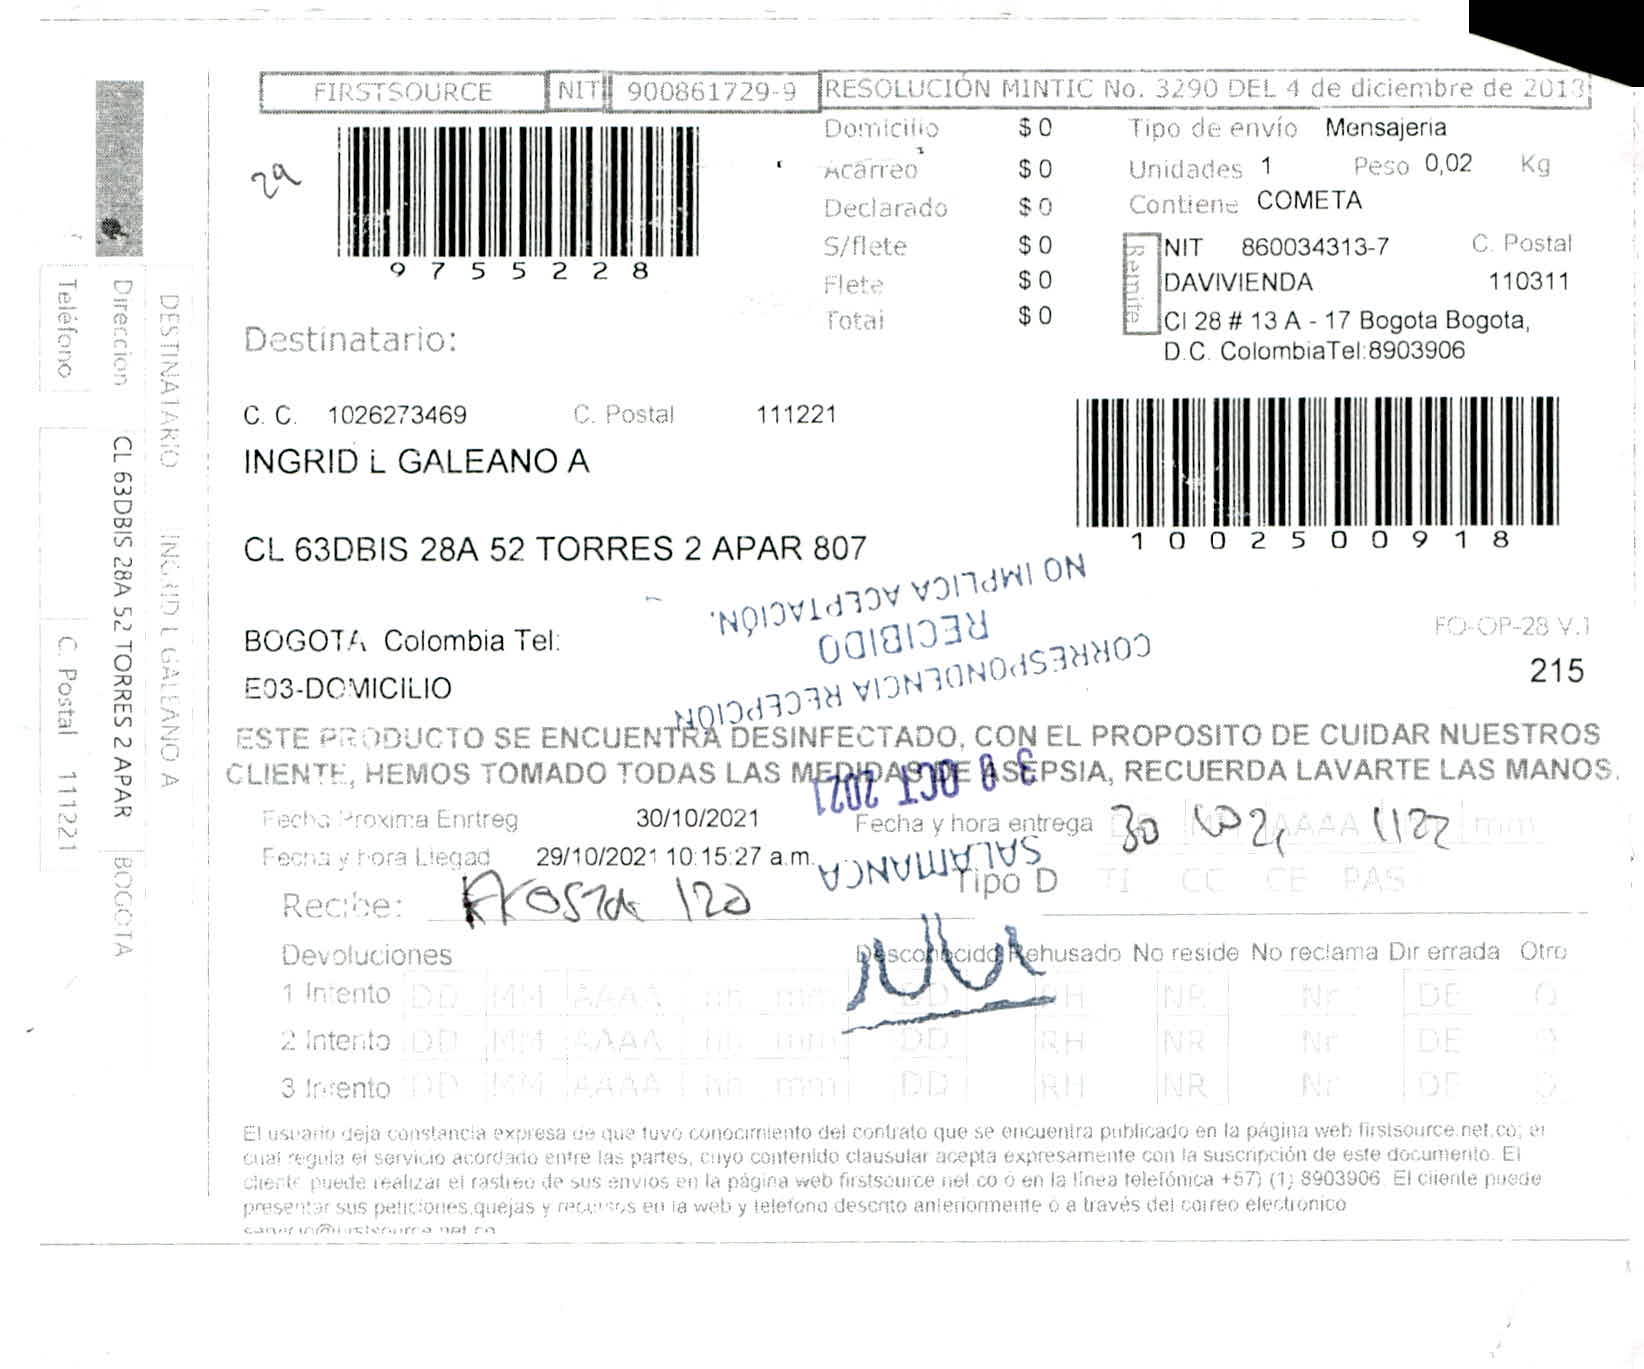 FIRSTSOURCE NIT 900861729-9 RESOLUCIÓN MINTIC No. 3290 DEL 4 de diciembre de 2013
29
9755228
Domicilio $ 0
Acarreo $ 0
Declarado $ 0
S/flete $ 0
Flete $ 0
Total $ 0
Tipo de envío Mensajeria
Unidades 1 Peso 0,02 Kg
Contiene COMETA
Remite
NIT 860034313-7 C. Postal
DAVIVIENDA 110311
Cl 28 # 13 A - 17 Bogota Bogota,
D.C. ColombiaTel:8903906
Destinatario:
C. C. 1026273469 C. Postal 111221
INGRID L GALEANO A
10025000918
CL 63DBIS 28A 52 TORRES 2 APAR 807
BOGOTA Colombia Tel:
E03-DOMICILIO
FO-OP-28 V.1
215
SALAMANCA
30 OCT 2021
CORRESPONDENCIA RECEPCIÓN
RECIBIDO
NO IMPLICA ACEPTACIÓN.
ESTE PRODUCTO SE ENCUENTRA DESINFECTADO, CON EL PROPOSITO DE CUIDAR NUESTROS
CLIENTE, HEMOS TOMADO TODAS LAS MEDIDAS DE ASEPSIA, RECUERDA LAVARTE LAS MANOS.
Fecha Proxima Enrtreg 30/10/2021
Fecha y hora entrega 30 1122 AAAA mm
Fecha y hora Llegad 29/10/2021 10:15:27 a.m.
Tipo D TI CC CE PAS
Recibe:
Devoluciones Desconocido Rehusado No reside No reclama Dir errada Otro
1 Intento DD MM AAAA hh mm DD RH NR Nr DE O
2 Intento DD MM AAAA hh mm DD RH NR Nr DE O
3 Intento DD MM AAAA hh mm DD RH NR Nr DE O
El usuario deja constancia expresa de que tuvo conocimiento del contrato que se encuentra publicado en la página web firstsource.net.co; el
cual regula el servicio acordado entre las partes, cuyo contenido clausular acepta expresamente con la suscripción de este documento. El
cliente puede realizar el rastreo de sus envios en la página web firstsource.net.co ó en la línea telefónica +57) (1) 8903906. El cliente puede
presentar sus peticiones,quejas y recursos en la web y telefono descrito anteriormente o a través del correo electronico
servicio@firstsource.net.co
DESTINATARIO INGRID L GALEANO A
Direccion CL 63DBIS 28A 52 TORRES 2 APAR BOGOTA
Teléfono C. Postal 111221